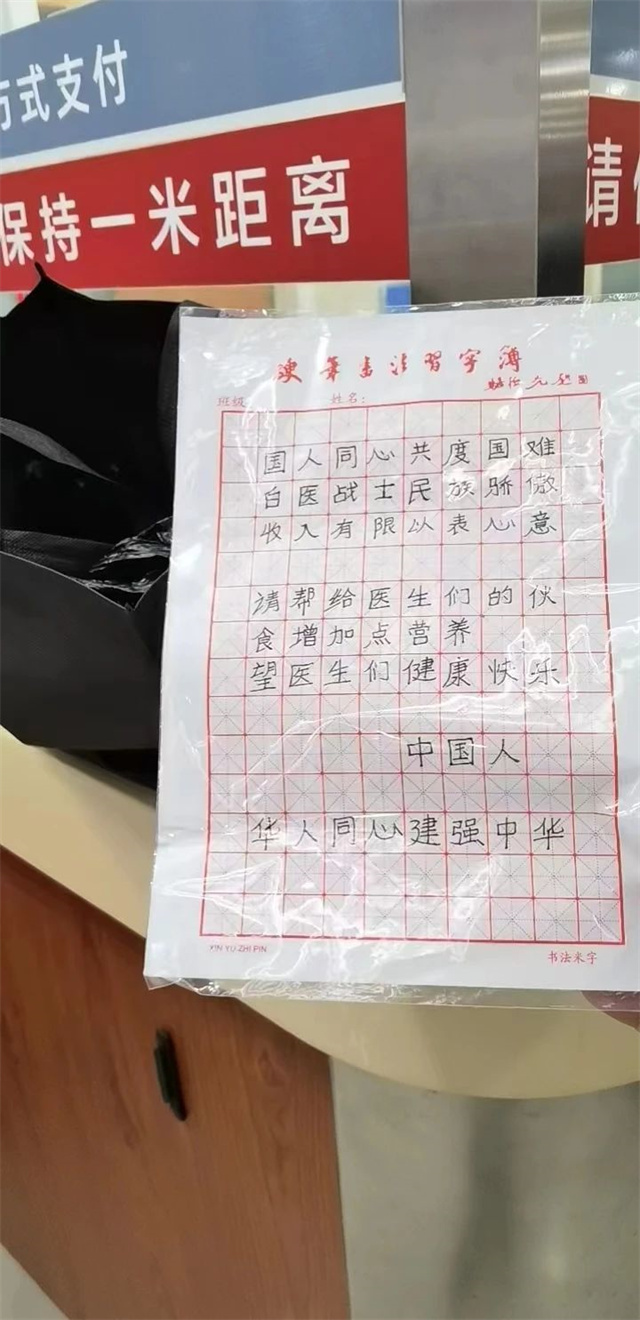 方式支付
保持一米距离
请
硬笔书法习字簿
班级
姓名：
国人同心共度国难
白医战士民族骄傲
收入有限以表心意
请帮给医生们的伙
食增加点营养
望医生们健康快乐
中国人
华人同心建强中华
YIN YU ZHI PIN
书法米字